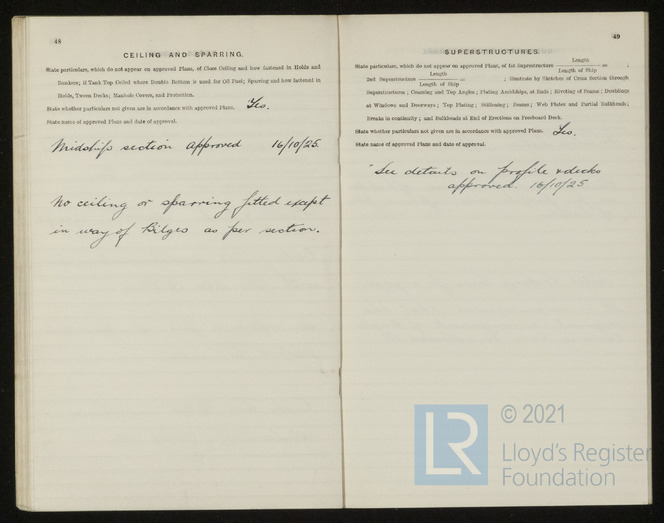 48
CEILING AND SPARRING.
State particulars, which do not appear on approved Plans, of Close Ceiling and how fastened in Holds and
Bunkers; if Tank Top Ceiled where Double Bottom is used for Oil Fuel; Sparring and how fastened in
Holds, Tween Decks; Manhole Covers, and Protection.
State whether particulars not given are in accordance with approved Plans. Yes.
State name of approved Plans and date of approval.
Midship section approved 16/10/25.
No ceiling or sparring fitted except
in way of Bilges as per section.
49
SUPERSTRUCTURES.
State particulars, which do not appear on approved Plans, of 1st Superstructure Length / Length of Ship = ;
2nd Superstructure Length / Length of Ship = ; illustrate by Sketches of Cross Section through
Superstructures; Coaming and Top Angles; Plating Amidships, at Ends; Riveting of Beams; Doublings
at Windows and Doorways; Top Plating; Stiffening; Beams; Web Plates and Partial Bulkheads;
Breaks in continuity; and Bulkheads at End of Erections on Freeboard Deck.
State whether particulars not given are in accordance with approved Plans. Yes.
State name of approved Plans and date of approval.
See details on profile & decks
approved. 16/10/25
LR
© 2021
Lloyd's Register
Foundation